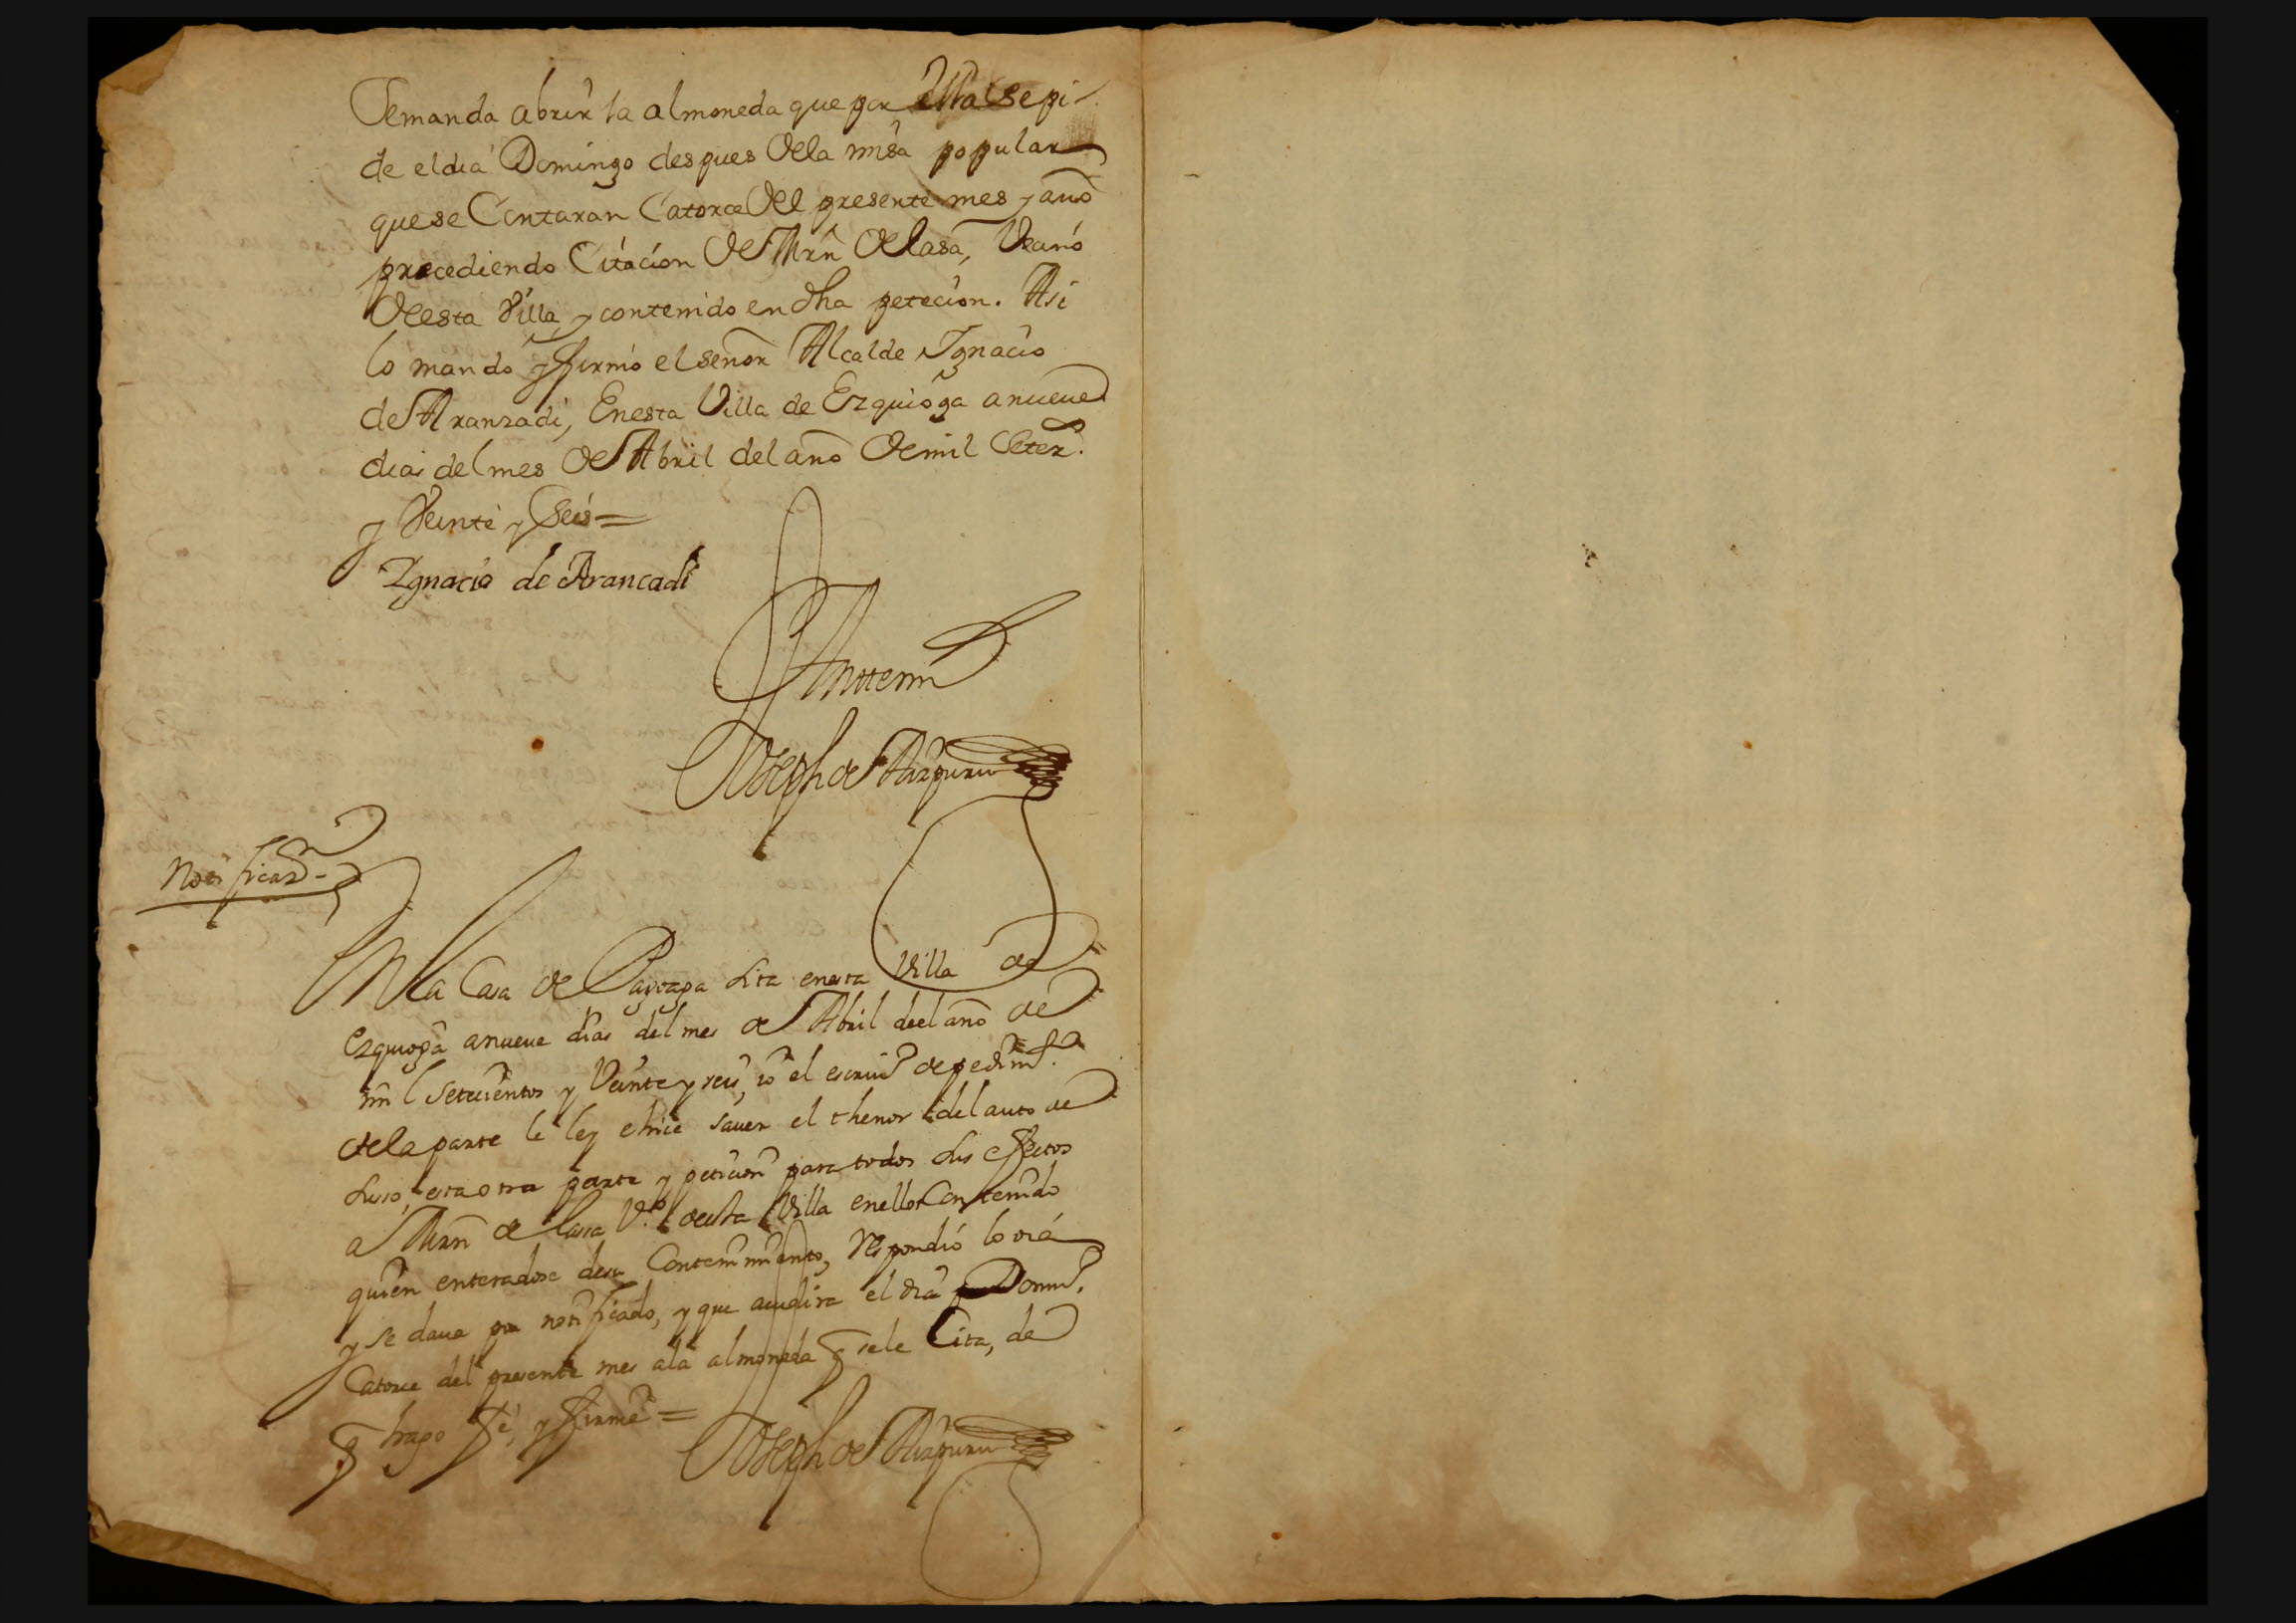 Semanda abrir la almoneda que por ella se pi-
de el dia Domingo despues dela misa popular
que se Contaran Catorce del presente mes y año
precediendo Citacion de Mrn de lasa, Vecino
de esta Villa, y contenido en dha peticion. Asi
lo mando y firmo el señor Alcalde Ignacio
de Aranzadi, En esta Villa de Ezquioga a nueue
dias del mes de Abril del año de mil Setez.
y Veinte y Seis =
Ignacio de Arancadi
Antte mi
Joseph de Aizpuru
Notificazon -
En la Casa de sita en esta Villa de
Ezquioga a nueue dias del mes de Abril de el año de
mil setecientos y Veinte y seis, io el escriuo de pedimto.
de la parte le ley e hice sauer el thenor del auto de
suso, esta otra parte y peticion para todos sus effectos
a Mrn de lassa Vo. de esta Villa en ellos Contenido
quien enterado de su Contenimiento, respondio lo oia
y se daua por notificado, y que acudira el dia Domingo.
Catorce del presente mes a la almoneda q se le Cita, de
q hago fe, y firme =
Joseph de Aizpuru